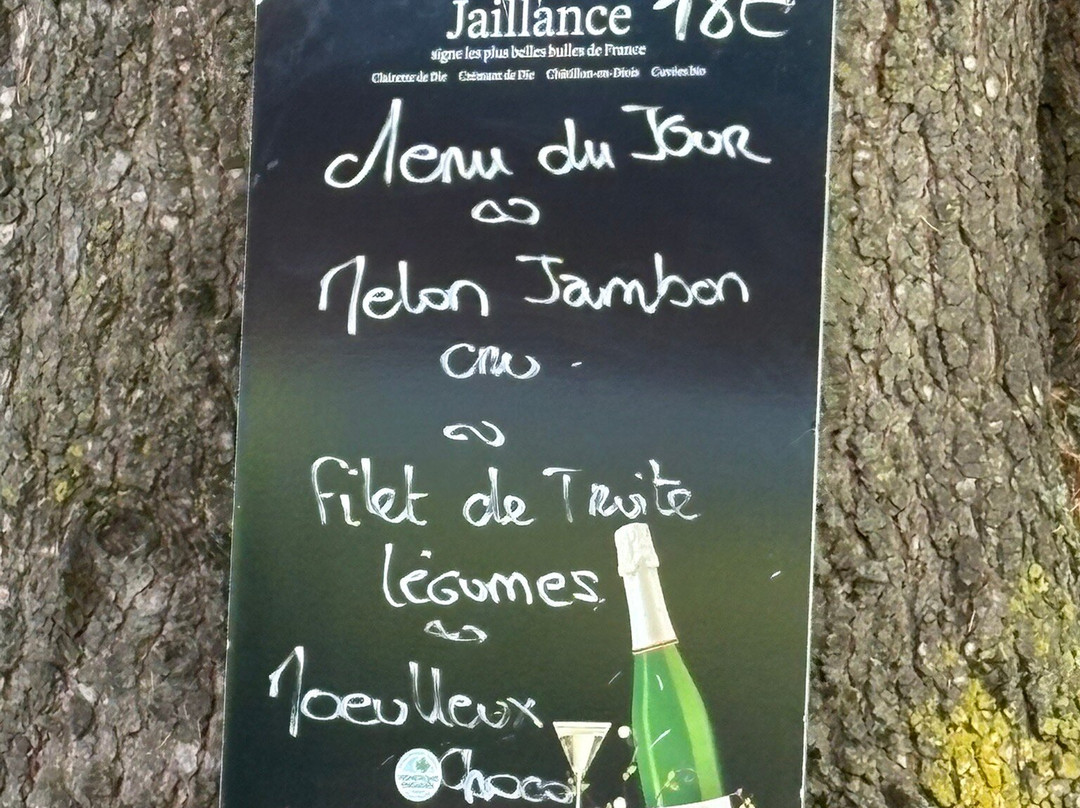 Jaillance 18€
signe les plus belles bulles de France
Clairette de Die Crémant de Die Châtillon-en-Diois Cuvées bio
Menu du Jour
Melon Jambon
cru
Filet de Truite
légumes
Moeulleux
Choco